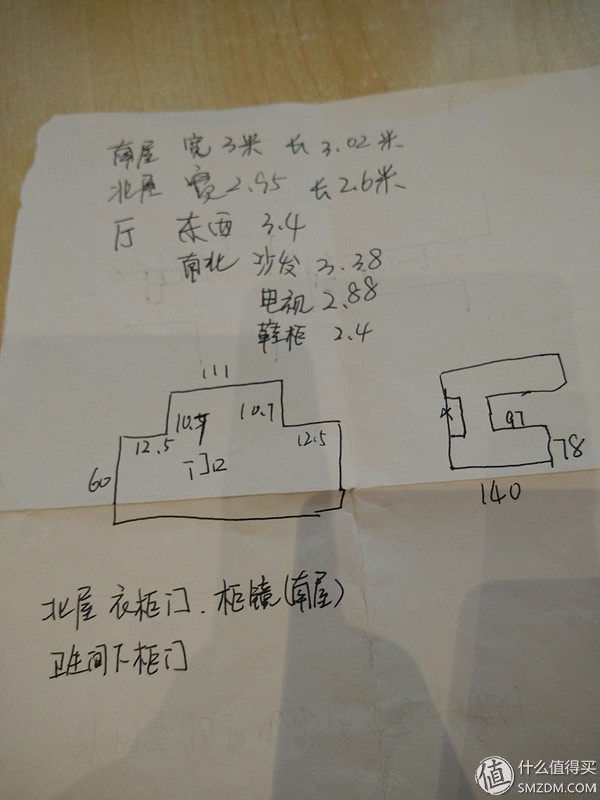 南屋 宽3米 长3.02米
北屋 宽2.95 长2.6米
厅 东西 3.4
南北 沙发 3.38
电视 2.88
鞋柜 2.4
111
10.7 10.7
12.5 12.5
60 门口
水 97
78
140
北屋 衣柜门、柜镜(南屋)
卫生间下柜门
值 什么值得买
SMZDM.COM